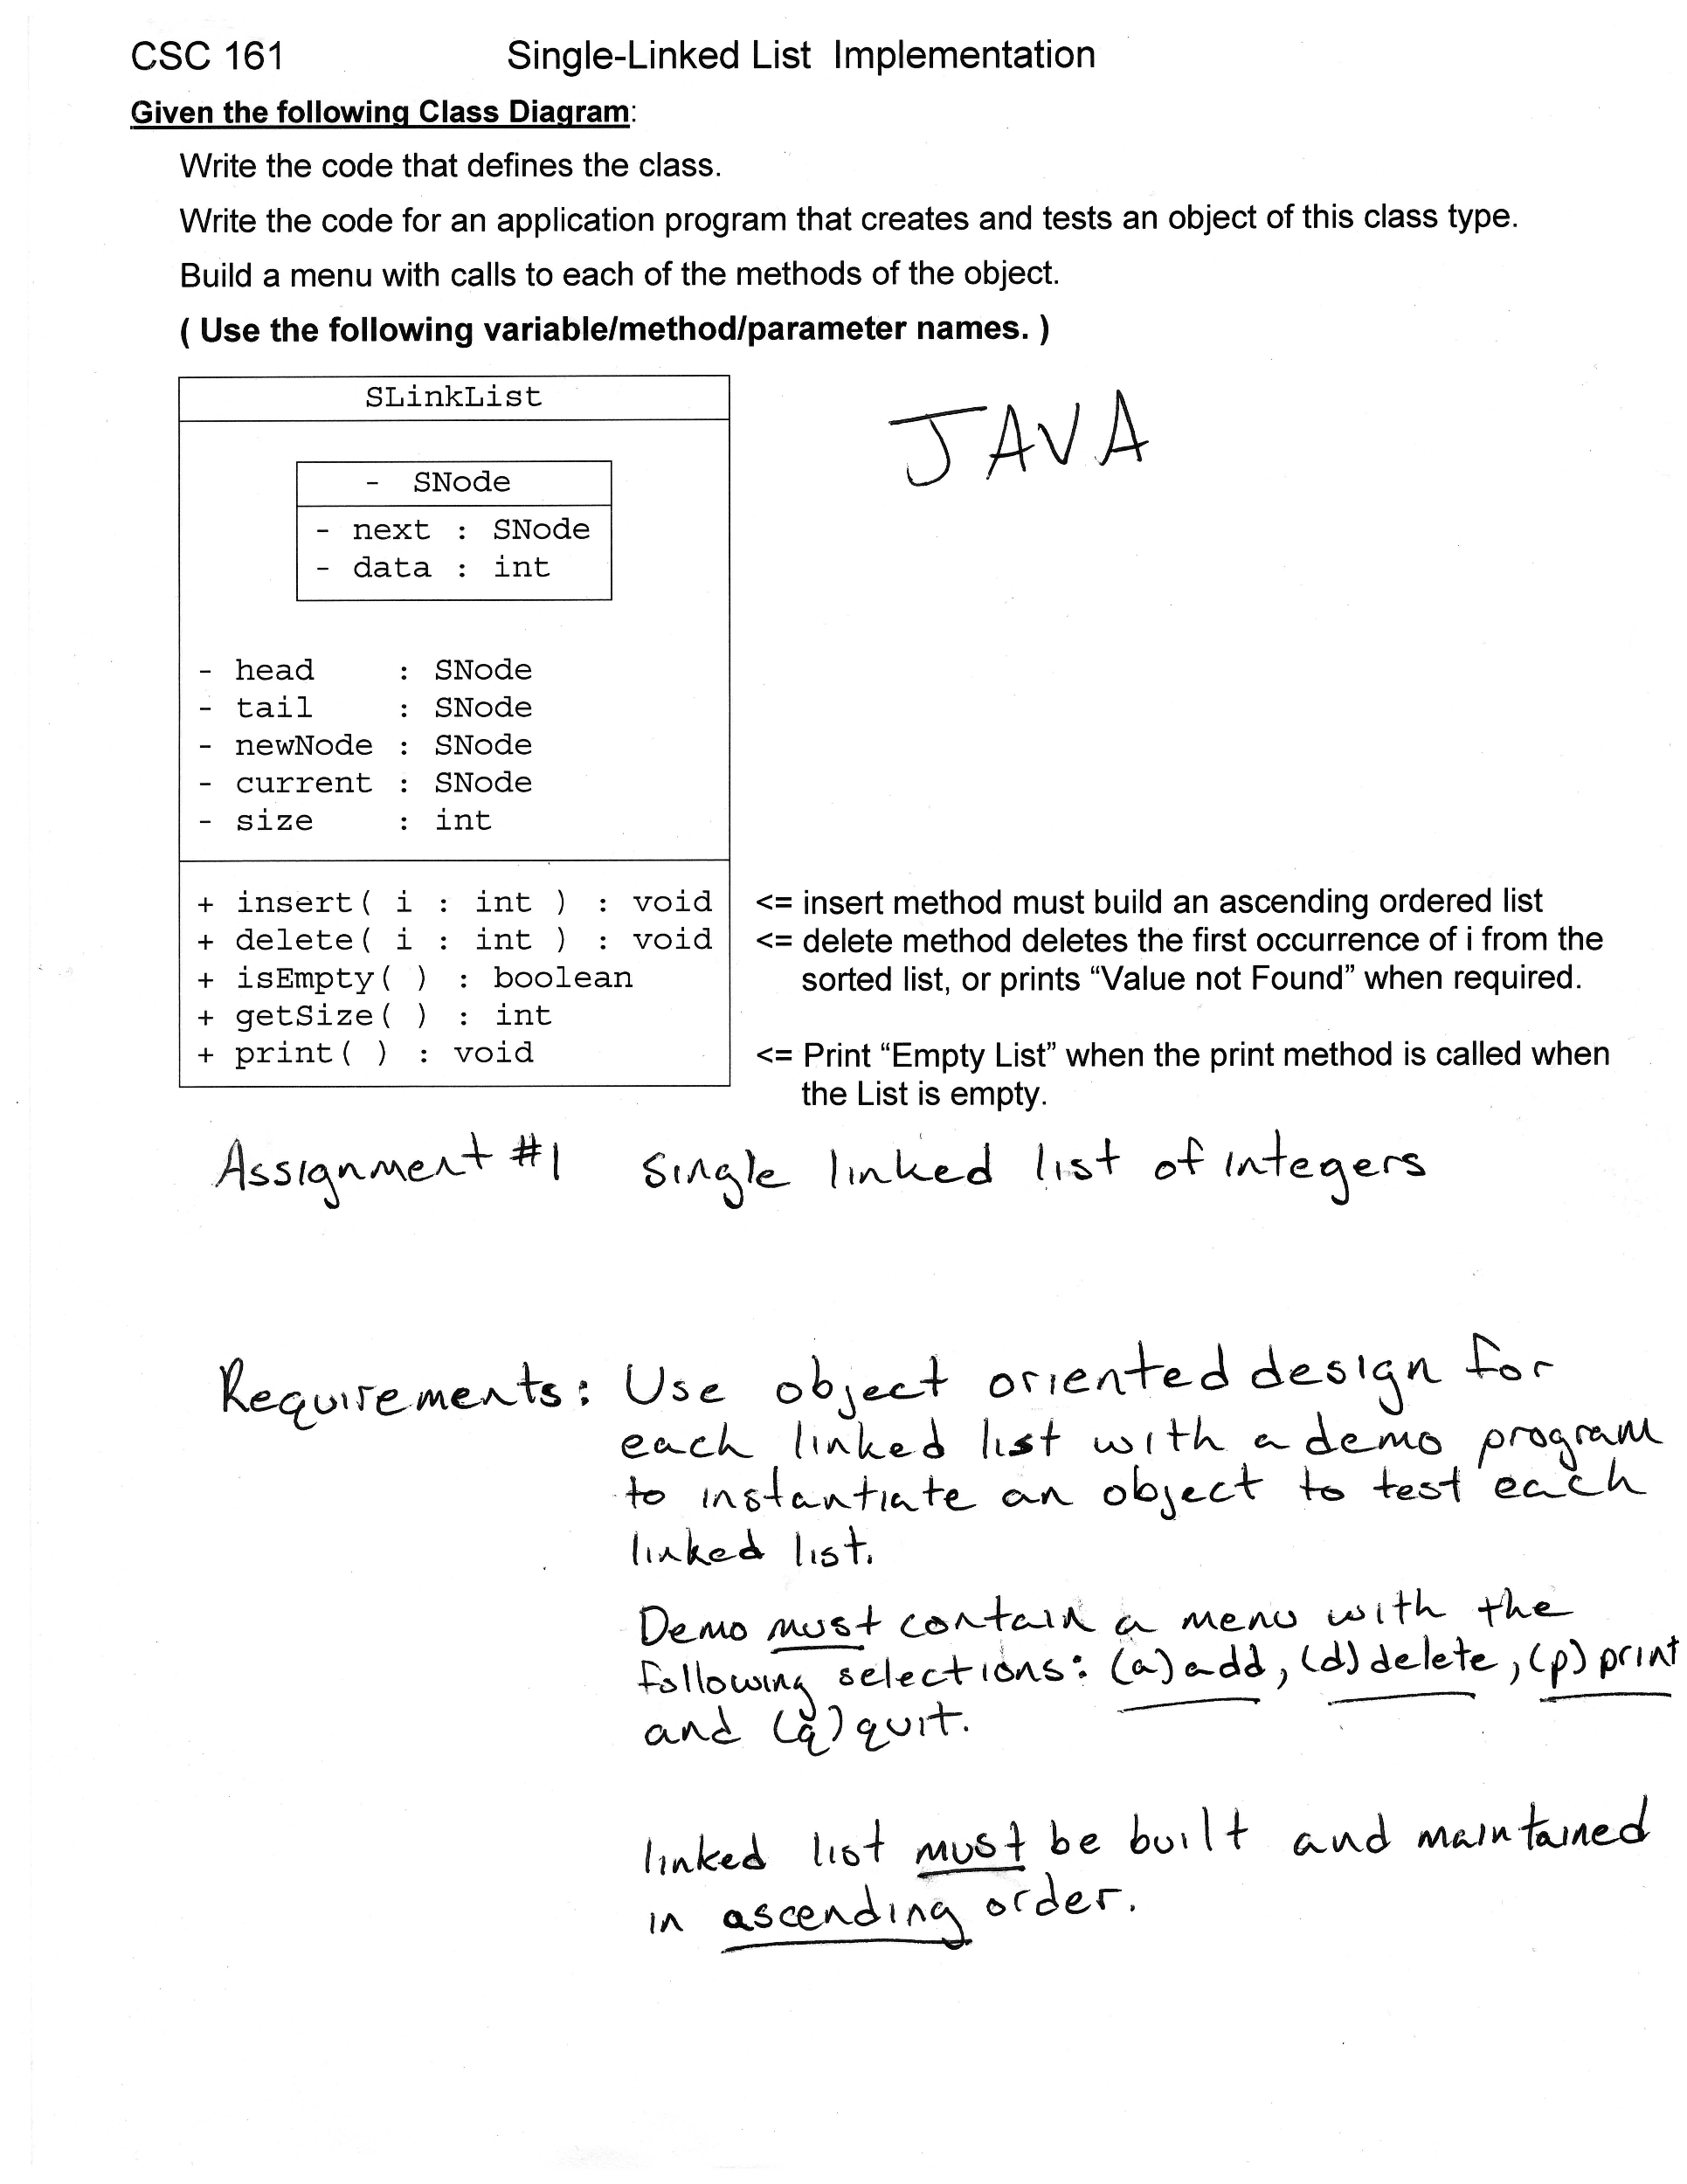 CSC 161 Single-Linked List Implementation
Given the following Class Diagram:
Write the code that defines the class.
Write the code for an application program that creates and tests an object of this class type.
Build a menu with calls to each of the methods of the object.
( Use the following variable/method/parameter names. )
SLinkList
JAVA
- SNode
- next : SNode
- data : int
- head : SNode
- tail : SNode
- newNode : SNode
- current : SNode
- size : int
+ insert( i : int ) : void <= insert method must build an ascending ordered list
+ delete( i : int ) : void <= delete method deletes the first occurrence of i from the
+ isEmpty( ) : boolean sorted list, or prints “Value not Found” when required.
+ getSize( ) : int
+ print( ) : void <= Print “Empty List” when the print method is called when
the List is empty.
Assignment #1 Single linked list of integers
Requirements: Use object oriented design for
each linked list with a demo program
to instantiate an object to test each
linked list.
Demo must contain a menu with the
following selections: (a) add, (d) delete, (p) print
and (q) quit.
linked list must be built and maintained
in ascending order.